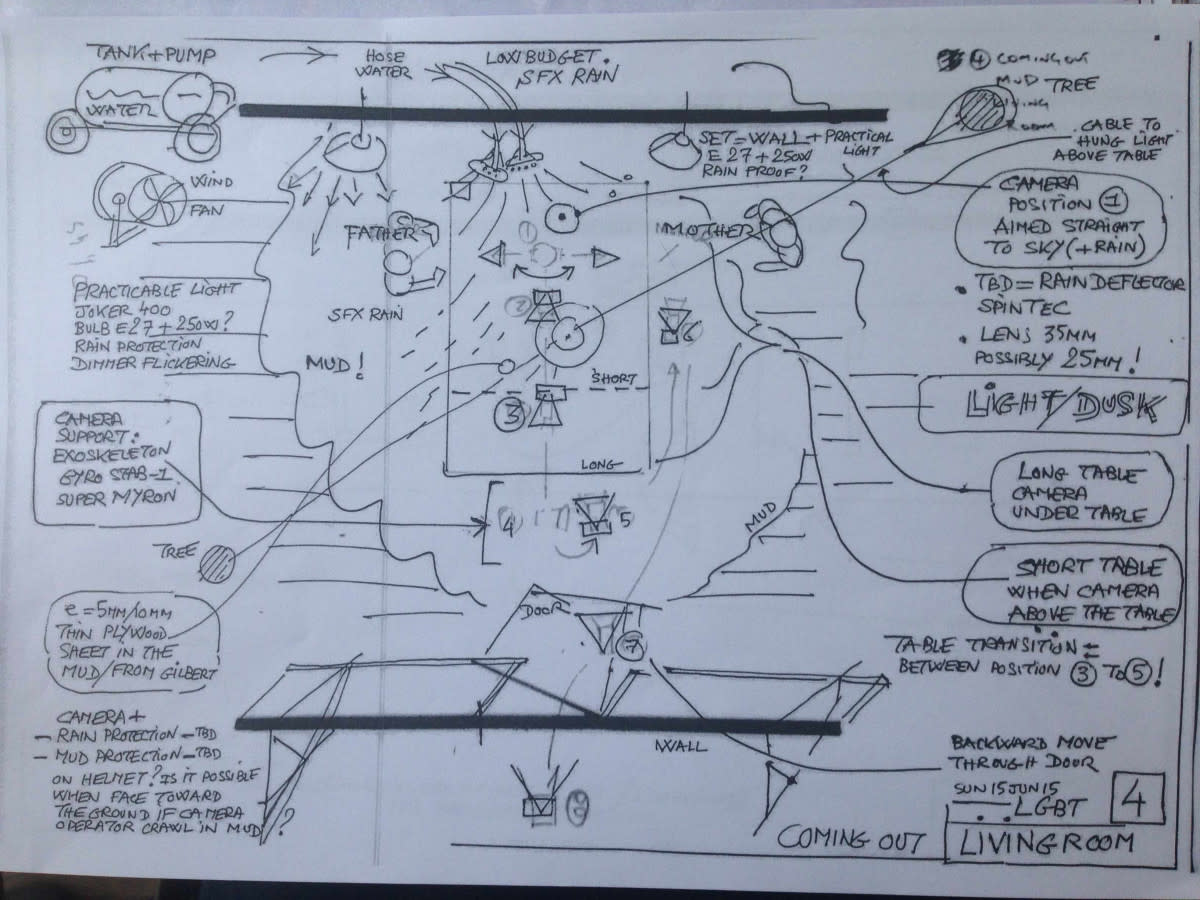 TANK+PUMP
WATER
HOSE
WATER
LOW BUDGET.
SFX RAIN
4 COMING OUT
MUD TREE
LIVING
ROOM
CABLE TO
HUNG LIGHT
ABOVE TABLE
SET=WALL+PRACTICAL
LIGHT
E27+250W
RAIN PROOF?
WIND
FAN
FATHER
MOTHER
1
CAMERA
POSITION 1
AIMED STRAIGHT
TO SKY(+RAIN)
PRACTICABLE LIGHT
JOKER 400
BULB E27+250W?
RAIN PROTECTION
DIMMER FLICKERING
SFX RAIN
MUD!
2
6
• TBD=RAIN DEFLECTOR
SPINTEC
• LENS 35MM
POSSIBLY 25MM!
SHORT
3
LONG
LIGHT/DUSK
CAMERA
SUPPORT:
EXOSKELETON
GYRO STAB-1
SUPER MYRON
4
5
MUD
LONG TABLE
CAMERA
UNDER TABLE
TREE
SHORT TABLE
WHEN CAMERA
ABOVE THE TABLE
e=5MM/10MM
THIN PLYWOOD
SHEET IN THE
MUD/FROM GILBERT
DOOR
7
TABLE TRANSITION
BETWEEN POSITION 3 TO 5!
CAMERA+
- RAIN PROTECTION-TBD
- MUD PROTECTION-TBD
ON HELMET? IS IT POSSIBLE
WHEN FACE TOWARD
THE GROUND IF CAMERA
OPERATOR CRAWL IN MUD?
WALL
8
BACKWARD MOVE
THROUGH DOOR
SUN 15 JUN 15
LGBT
4
COMING OUT
LIVINGROOM